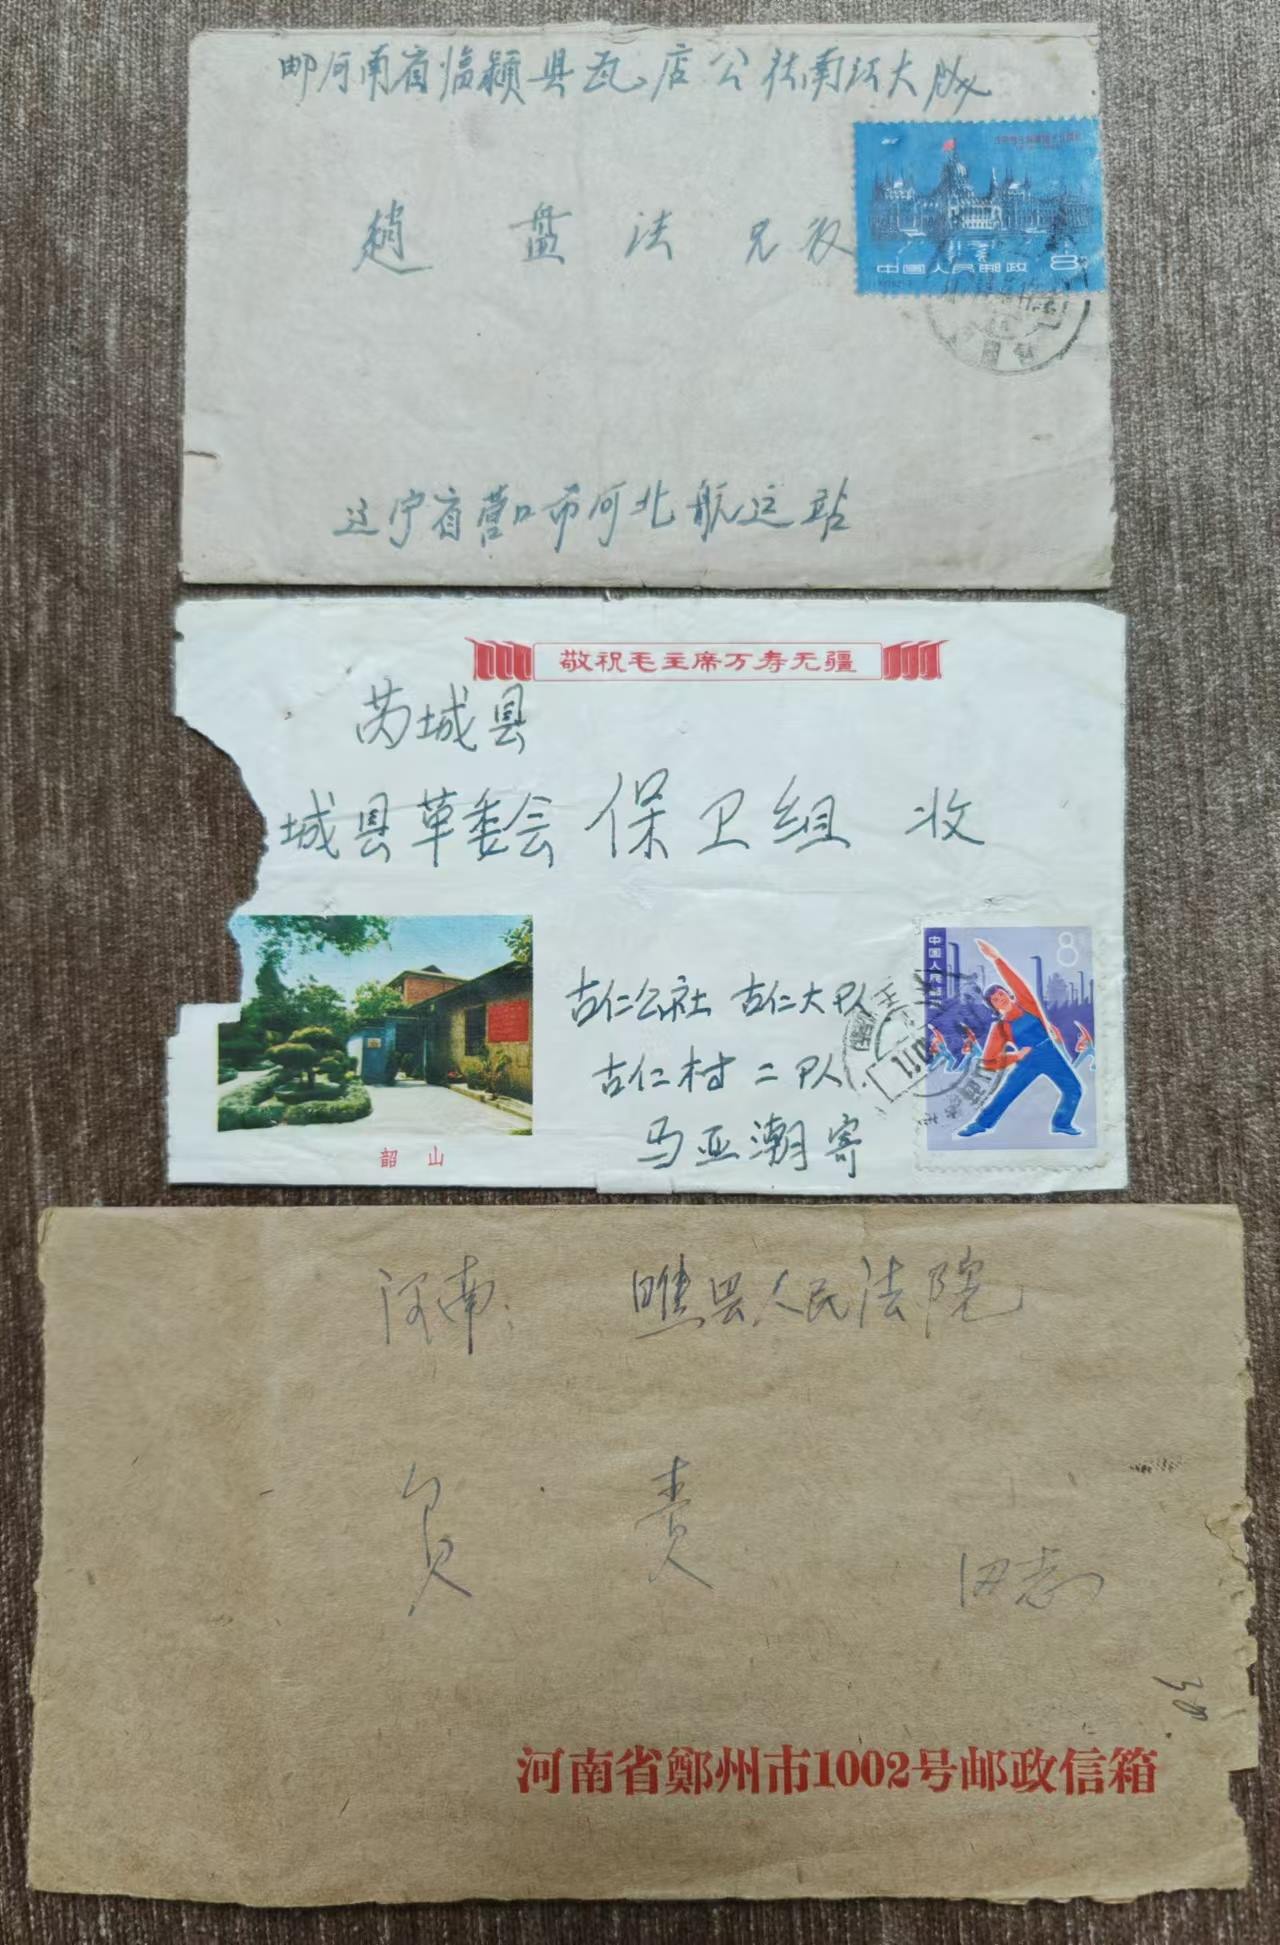 邮河南省临颍县瓦店公社南江大队
趙 盘 法 兄 收
中国人民邮政 8
辽宁省营口市河北航运站
敬祝毛主席万寿无疆
芮城县
城县革委会 保卫组 收
古仁公社 古仁大队
古仁村 二队
马亚潮寄
中国人民邮政
8
韶 山
河南: 睢县人民法院
负 责 同志
河南省鄭州市1002号邮政信箱